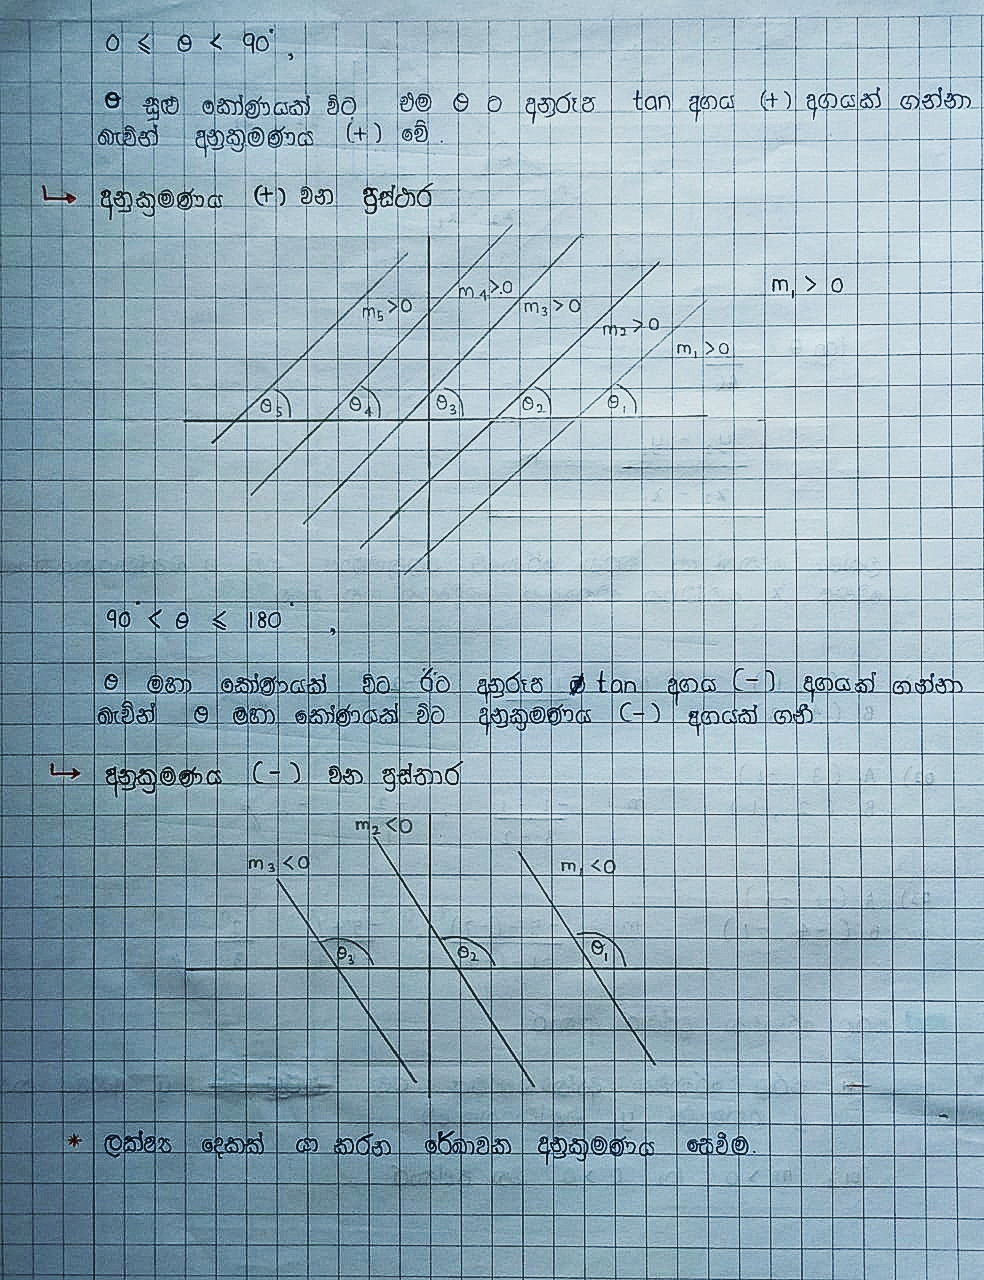 0 ⩽ θ < 90°,
θ සුළු කෝණයක් විට එම θ ට අනුරූප tan අගය (+) අගයක් ගන්නා
බැවින් අනුක්‍රමණය (+) වේ.
↳ අනුක්‍රමණය (+) වන ප්‍රස්ථාර
m₁ > 0
m₅>0 m₄>0 m₃>0 m₂>0 m₁>0
θ₅ θ₄ θ₃ θ₂ θ₁
90° < θ ⩽ 180°,
θ මහා කෝණයක් විට ඊට අනුරූප tan අගය (-) අගයක් ගන්නා
බැවින් θ මහා කෝණයක් විට අනුක්‍රමණය (-) අගයක් ගනී
↳ අනුක්‍රමණය (-) වන ප්‍රස්තාර
m₃<0 m₂<0 m₁<0
θ₃ θ₂ θ₁
* ලක්ෂ්‍ය දෙකක් යා කරන රේඛාවක අනුක්‍රමණය සෙවීම.